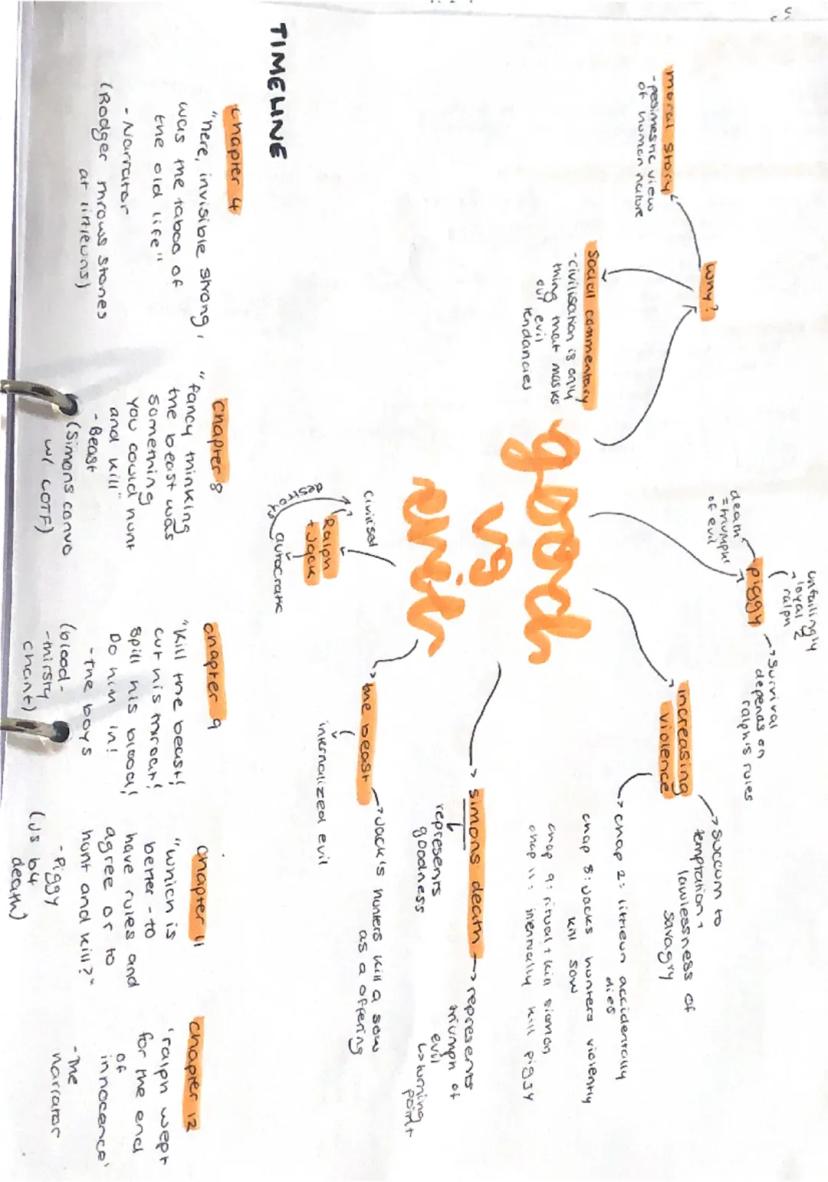 why?
moral story
-pesimestic view
of human nature
social commentary
-civilisation is only
thing that masks
our evil
tendancies
good
vs
evil
unfailingly
loyal 2
ralph
piggy
death
=triumph
of evil
survival
depends on
ralph's rules
increasing
violence
succum to
temptation +
lawlessness of
savagry
chap 2: littleun accidentally
dies
chap 8: Jacks hunters violently
kill sow
chap 9: ritual + kill simon
chap 11: intentually kill piggy
simons death
represents
goodness
represents
triumph of
evil
turning
point
the beast
internalized evil
Jack's hunters kill a sow
as a offering
Ralph
+ Jack
civilised
autocratic
destroys
TIMELINE
chapter 4
"here, invisible strong,
was the taboo of
the old life"
- Narrator
(Rodger throws stones
at littleuns)
chapter 8
"fancy thinking
the beast was
something
you could hunt
and kill"
- Beast
(Simons convo
w/ LOTF)
chapter 9
"kill the beast!
cut his throat!
spill his blood!
Do him in!
- the boys
(blood-
-thirsty
chant)
chapter 11
"which is
better - to
have rules and
agree or to
hunt and kill?"
- Piggy
(Js b4
death)
chapter 12
'ralph wept
for the end
of
innocence'
- The
narrator